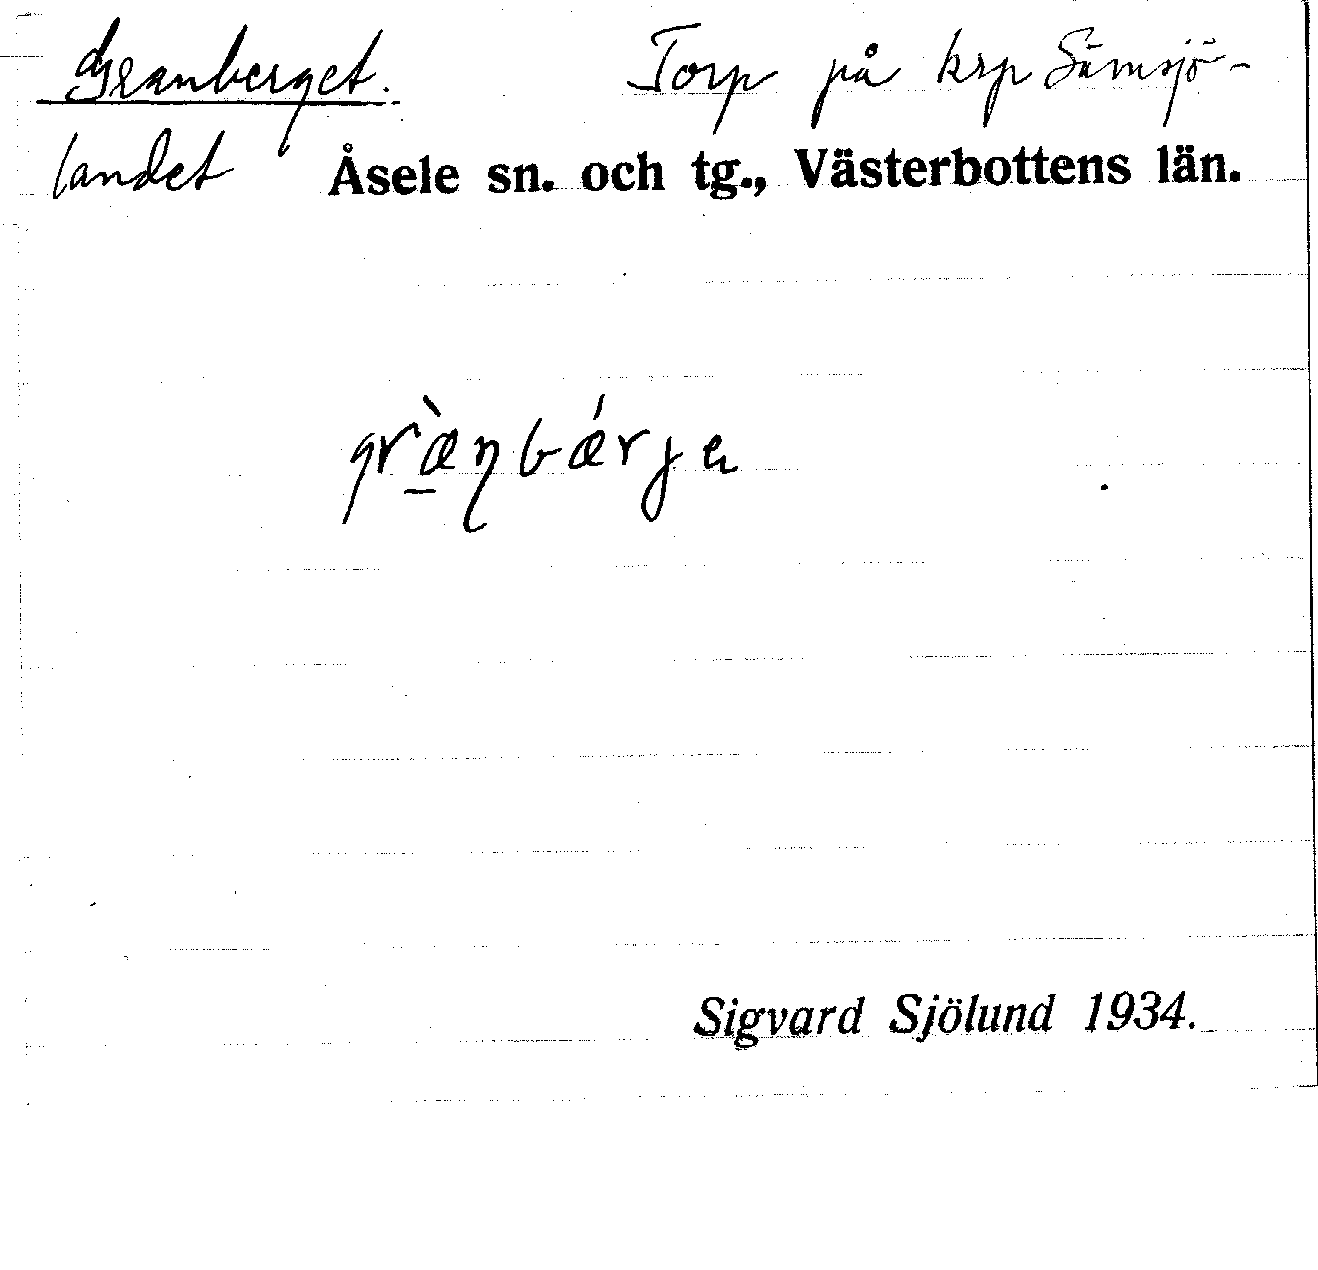 Granberget. Torp på krp Sämsjö-
landet Åsele sn. och tg., Västerbottens län.
græ̀nbǽrje
Sigvard Sjölund 1934.